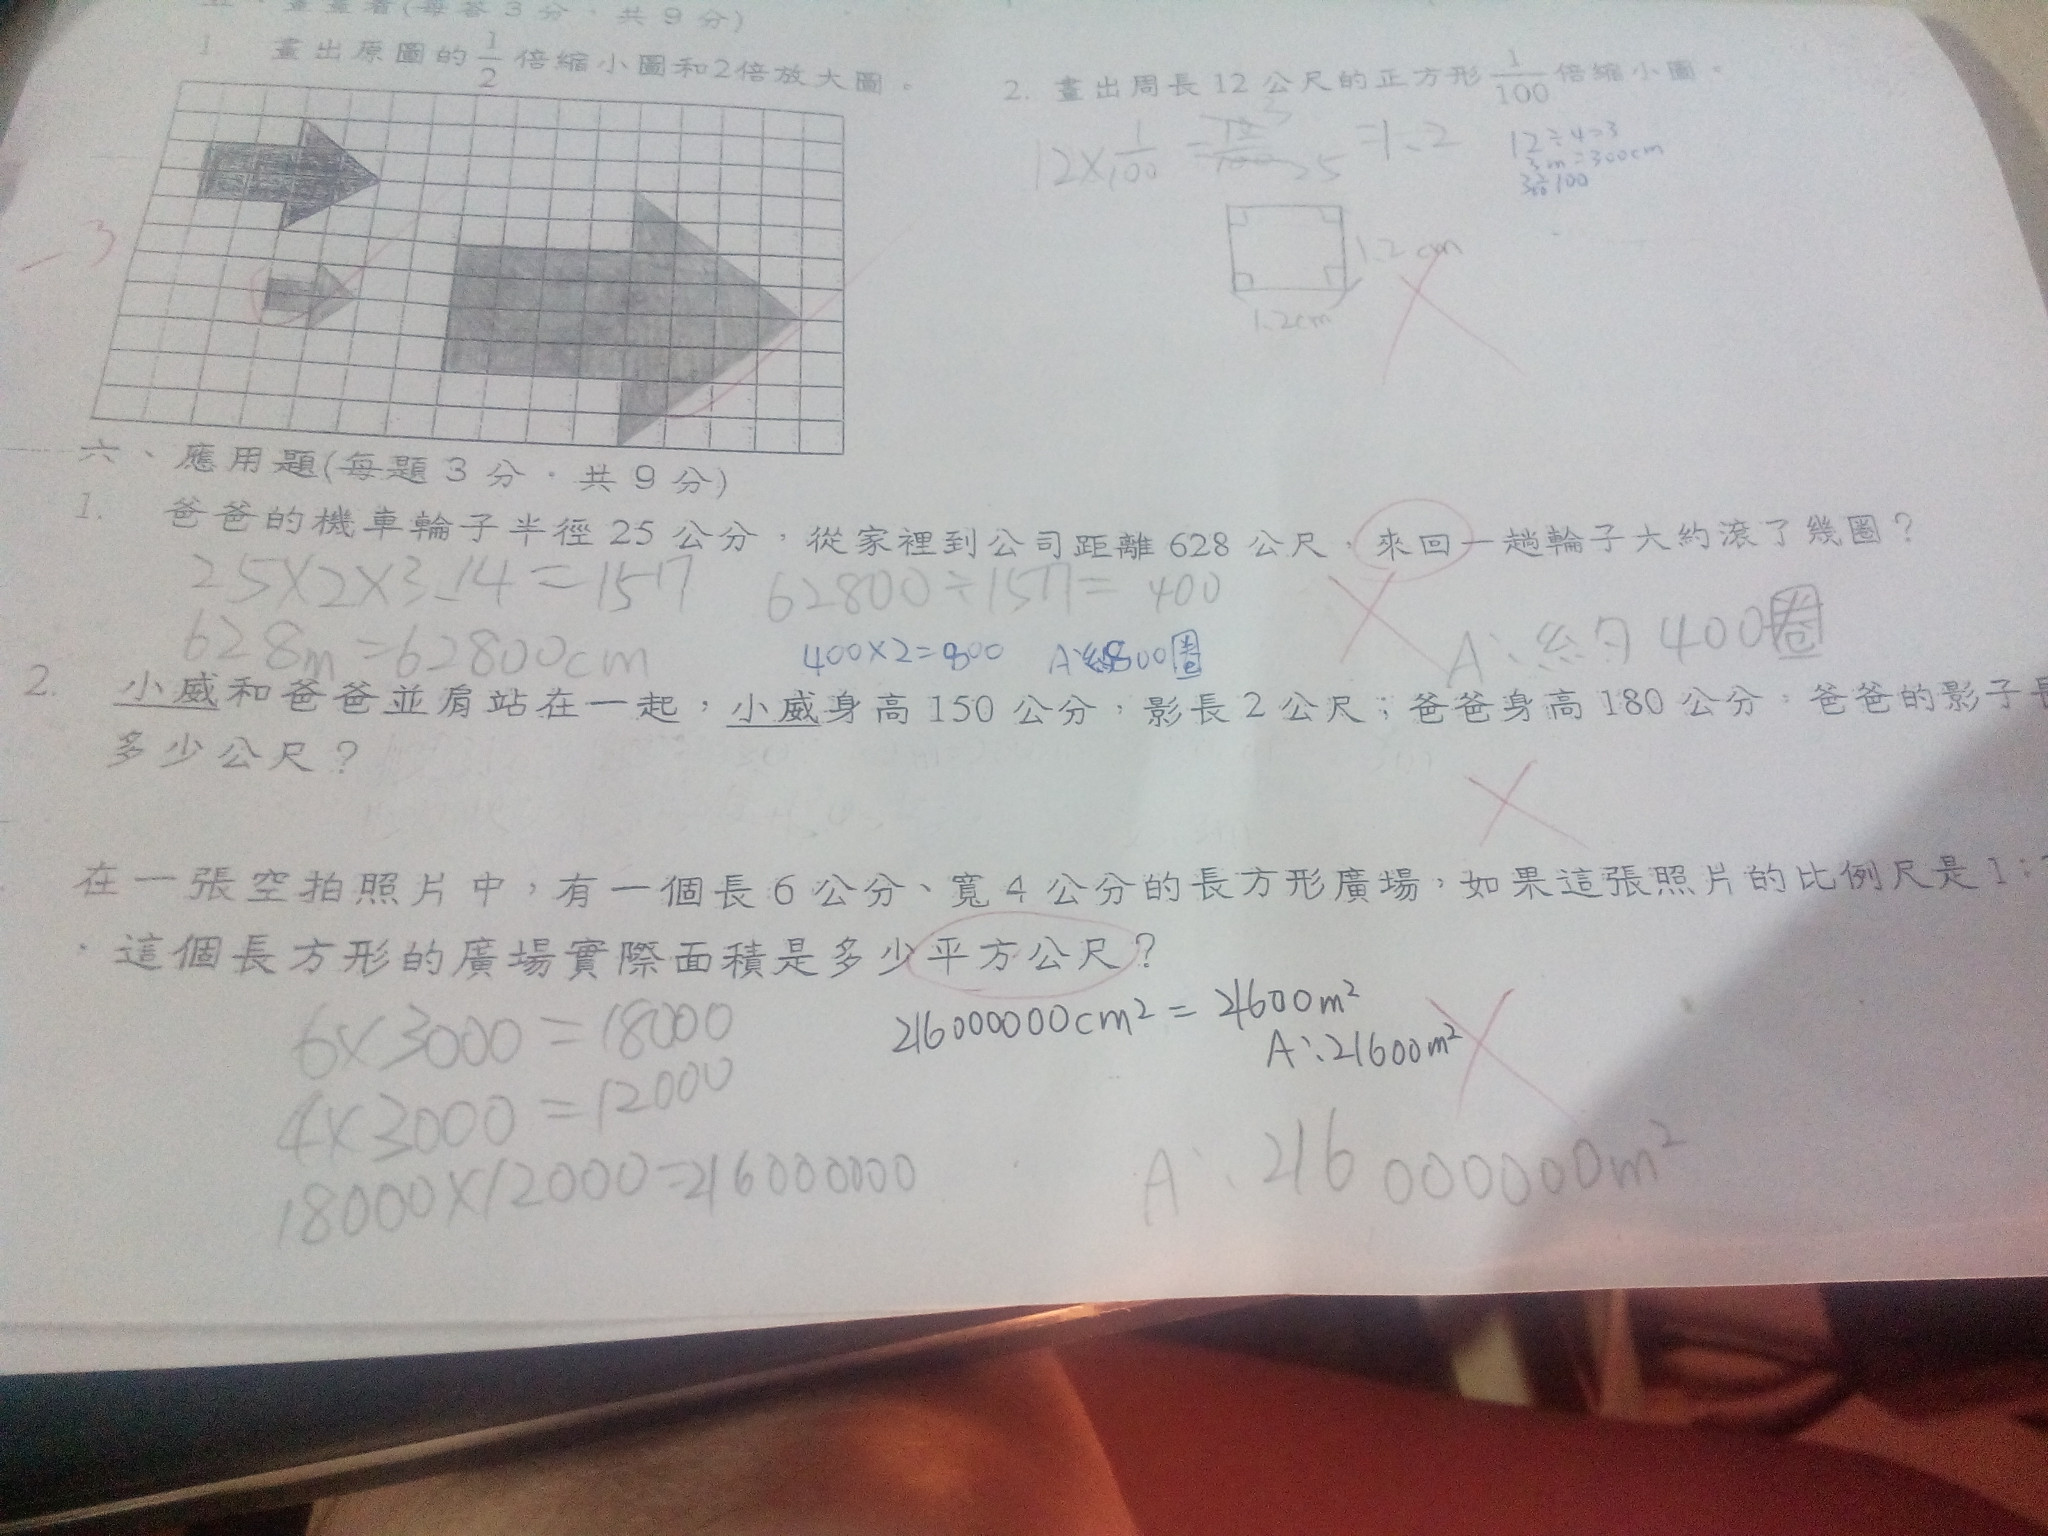 畫畫看(每答3分,共9分)
1. 畫出原圖的1/2倍縮小圖和2倍放大圖。
-3
2. 畫出周長12公尺的正方形1/100倍縮小圖。
12×1/100 = =1.2
12÷4=3
3m=300cm
1.2cm
1.2cm
六、應用題(每題3分,共9分)
1. 爸爸的機車輪子半徑25公分,從家裡到公司距離628公尺,來回一趟輪子大約滾了幾圈?
25×2×3.14=157 62800÷157=400
628m=62800cm
400×2=800 A:約800圈
A:約400圈
2. 小威和爸爸並肩站在一起,小威身高150公分,影長2公尺;爸爸身高180公分,爸爸的影子長
多少公尺?
在一張空拍照片中,有一個長6公分、寬4公分的長方形廣場,如果這張照片的比例尺是1:
,這個長方形的廣場實際面積是多少平方公尺?
6×3000=18000
4×3000=12000
18000×12000=216000000
216000000cm²=21600m²
A:21600m²
A:216000000m²